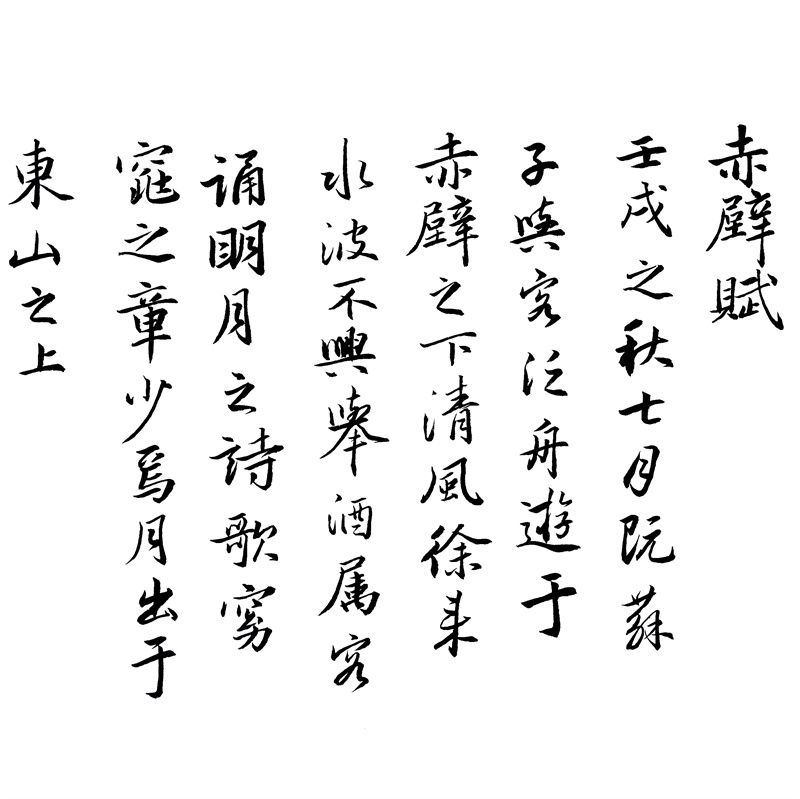 赤壁賦
壬戌之秋七月既蘇
子與客泛舟遊于
赤壁之下清風徐来
水波不興舉酒属客
誦明月之詩歌窈
窕之章少焉月出于
東山之上